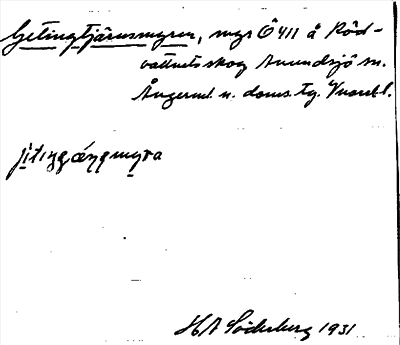 Getingtjärnsmyren, myr Ö 411 å Röd-
vattnets skog Anundsjö sn.
Ångerml. n. doms. tg. Vnorrl.
jitıŋgæŋgmyra
HA Söderberg 1931